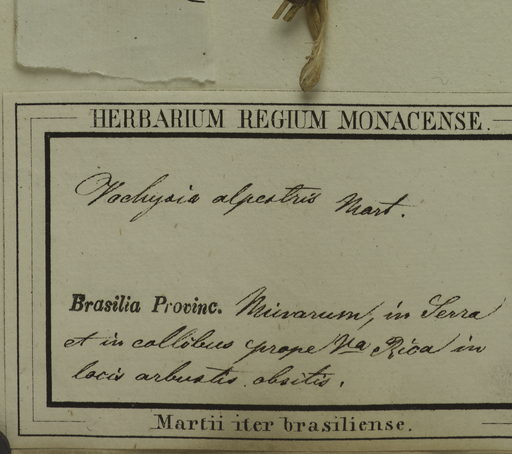 HERBARIUM REGIUM MONACENSE.
Vochysia alpestris Mart.
Brasilia Provinc. Minarum, in Serra
et in collibus prope Vᵃ Rica in
locis arbustis obsitis.
Martii iter brasiliense.